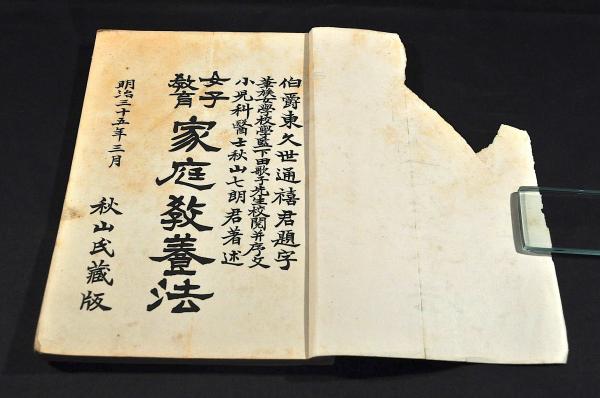 伯爵東久世通禧君題字
華族女學校學監下田歌子先生校閲并序文
小児科醫士秋山七朗君著述
女子教育
家庭教養法
明治三十五年三月
秋山氏藏版